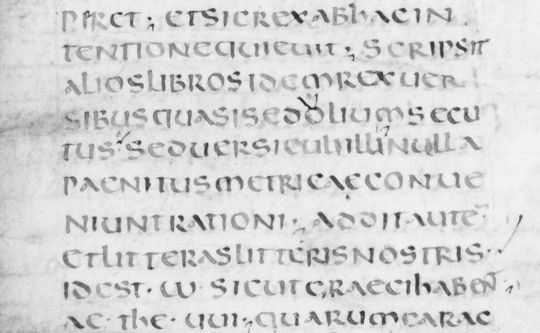 et sic rex ab hac in
tentione quieuit; scripsit
alios libros idem rex uer
sibus quasi sedolium secu
tus; sed uersiculi illi nulla
paenitus metricae conue
niunt rationi; addit autē
et litteras litteris nostris·
id est· ω· sicut graeci habent·
ae· the· uui· quarum carac